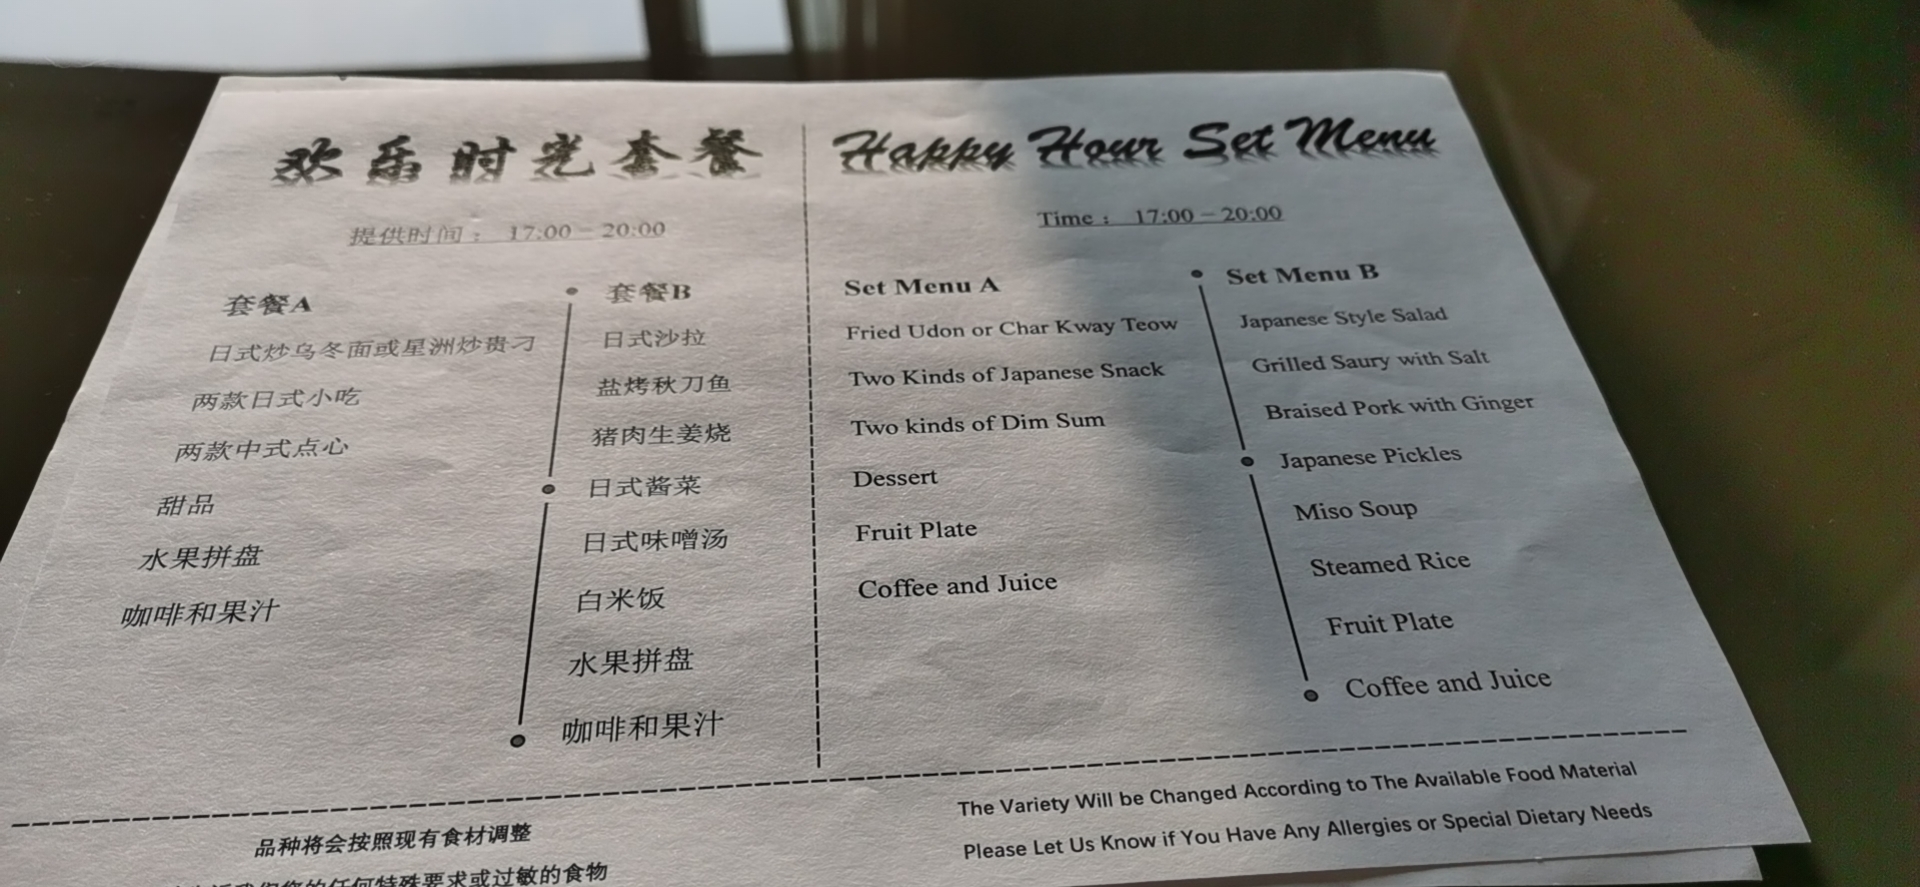 欢乐时光套餐
提供时间： 17:00－20:00
套餐A
日式炒乌冬面或星洲炒贵刁
两款日式小吃
两款中式点心
甜品
水果拼盘
咖啡和果汁
套餐B
日式沙拉
盐烤秋刀鱼
猪肉生姜烧
日式酱菜
日式味噌汤
白米饭
水果拼盘
咖啡和果汁
品种将会按照现有食材调整
我们您的任何特殊要求或过敏的食物
Happy Hour Set Menu
Time： 17:00－20:00
Set Menu A
Fried Udon or Char Kway Teow
Two Kinds of Japanese Snack
Two kinds of Dim Sum
Dessert
Fruit Plate
Coffee and Juice
Set Menu B
Japanese Style Salad
Grilled Saury with Salt
Braised Pork with Ginger
Japanese Pickles
Miso Soup
Steamed Rice
Fruit Plate
Coffee and Juice
The Variety Will be Changed According to The Available Food Material
Please Let Us Know if You Have Any Allergies or Special Dietary Needs